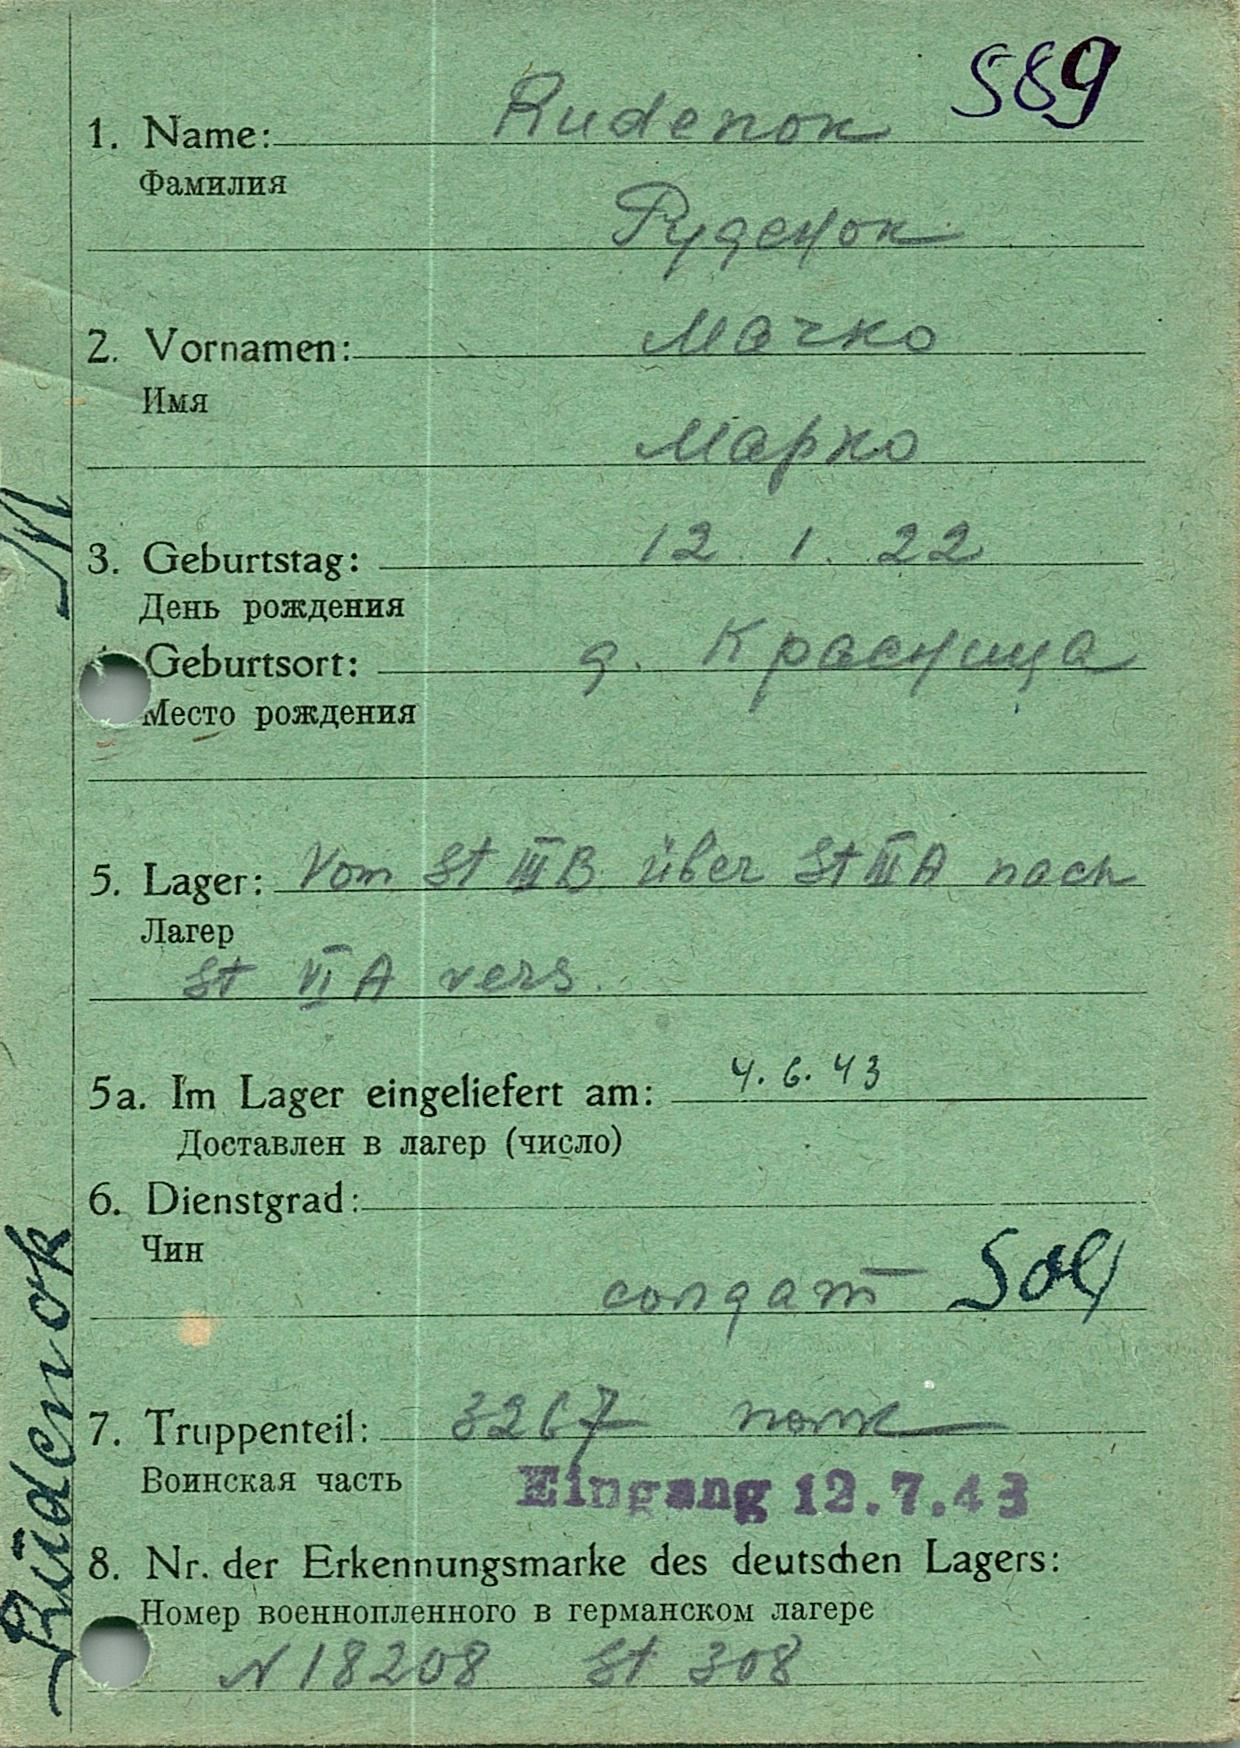 589
1. Name: Rudenok
Фамилия
Руденок
2. Vornamen: Marko
Имя
Марко
3. Geburtstag: 12 1. 22
День рождения
Geburtsort: д. Красница
Место рождения
5. Lager: Vom St III B über St III A nach
Лагер
St VI A vers.
5a. Im Lager eingeliefert am: 4. 6. 43
Доставлен в лагер (число)
6. Dienstgrad:
Чин
солдат Sol
7. Truppenteil: 3267 полк
Воинская часть
Eingang 12.7.43
8. Nr. der Erkennungsmarke des deutschen Lagers:
Номер военнопленного в германском лагере
N 18208 St 308
Rüdenok M